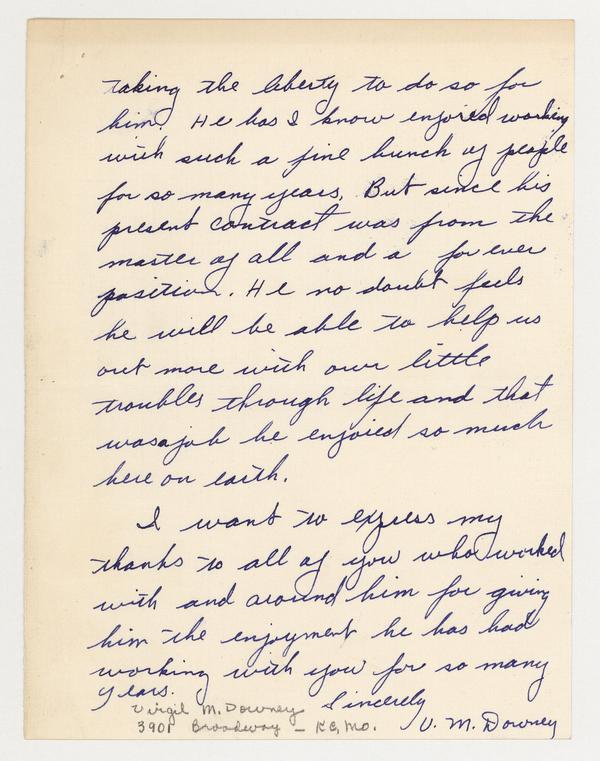 taking the liberty to do so for
him. He has I know enjoied working
with such a fine bunch of people
for so many years. But since his
present contract was from the
master of all and a forever
position. He no doubt feels
he will be able to help us
out more with our little
troubles through life and that
was a job he enjoied so much
here on earth.
I want to express my
thanks to all of you who worked
with and around him for giving
him the enjoyment he has had
working with you for so many
years.
Sincerely
V. M. Downey
Virgil M. Downey
3908 Broadway - K.C, Mo.